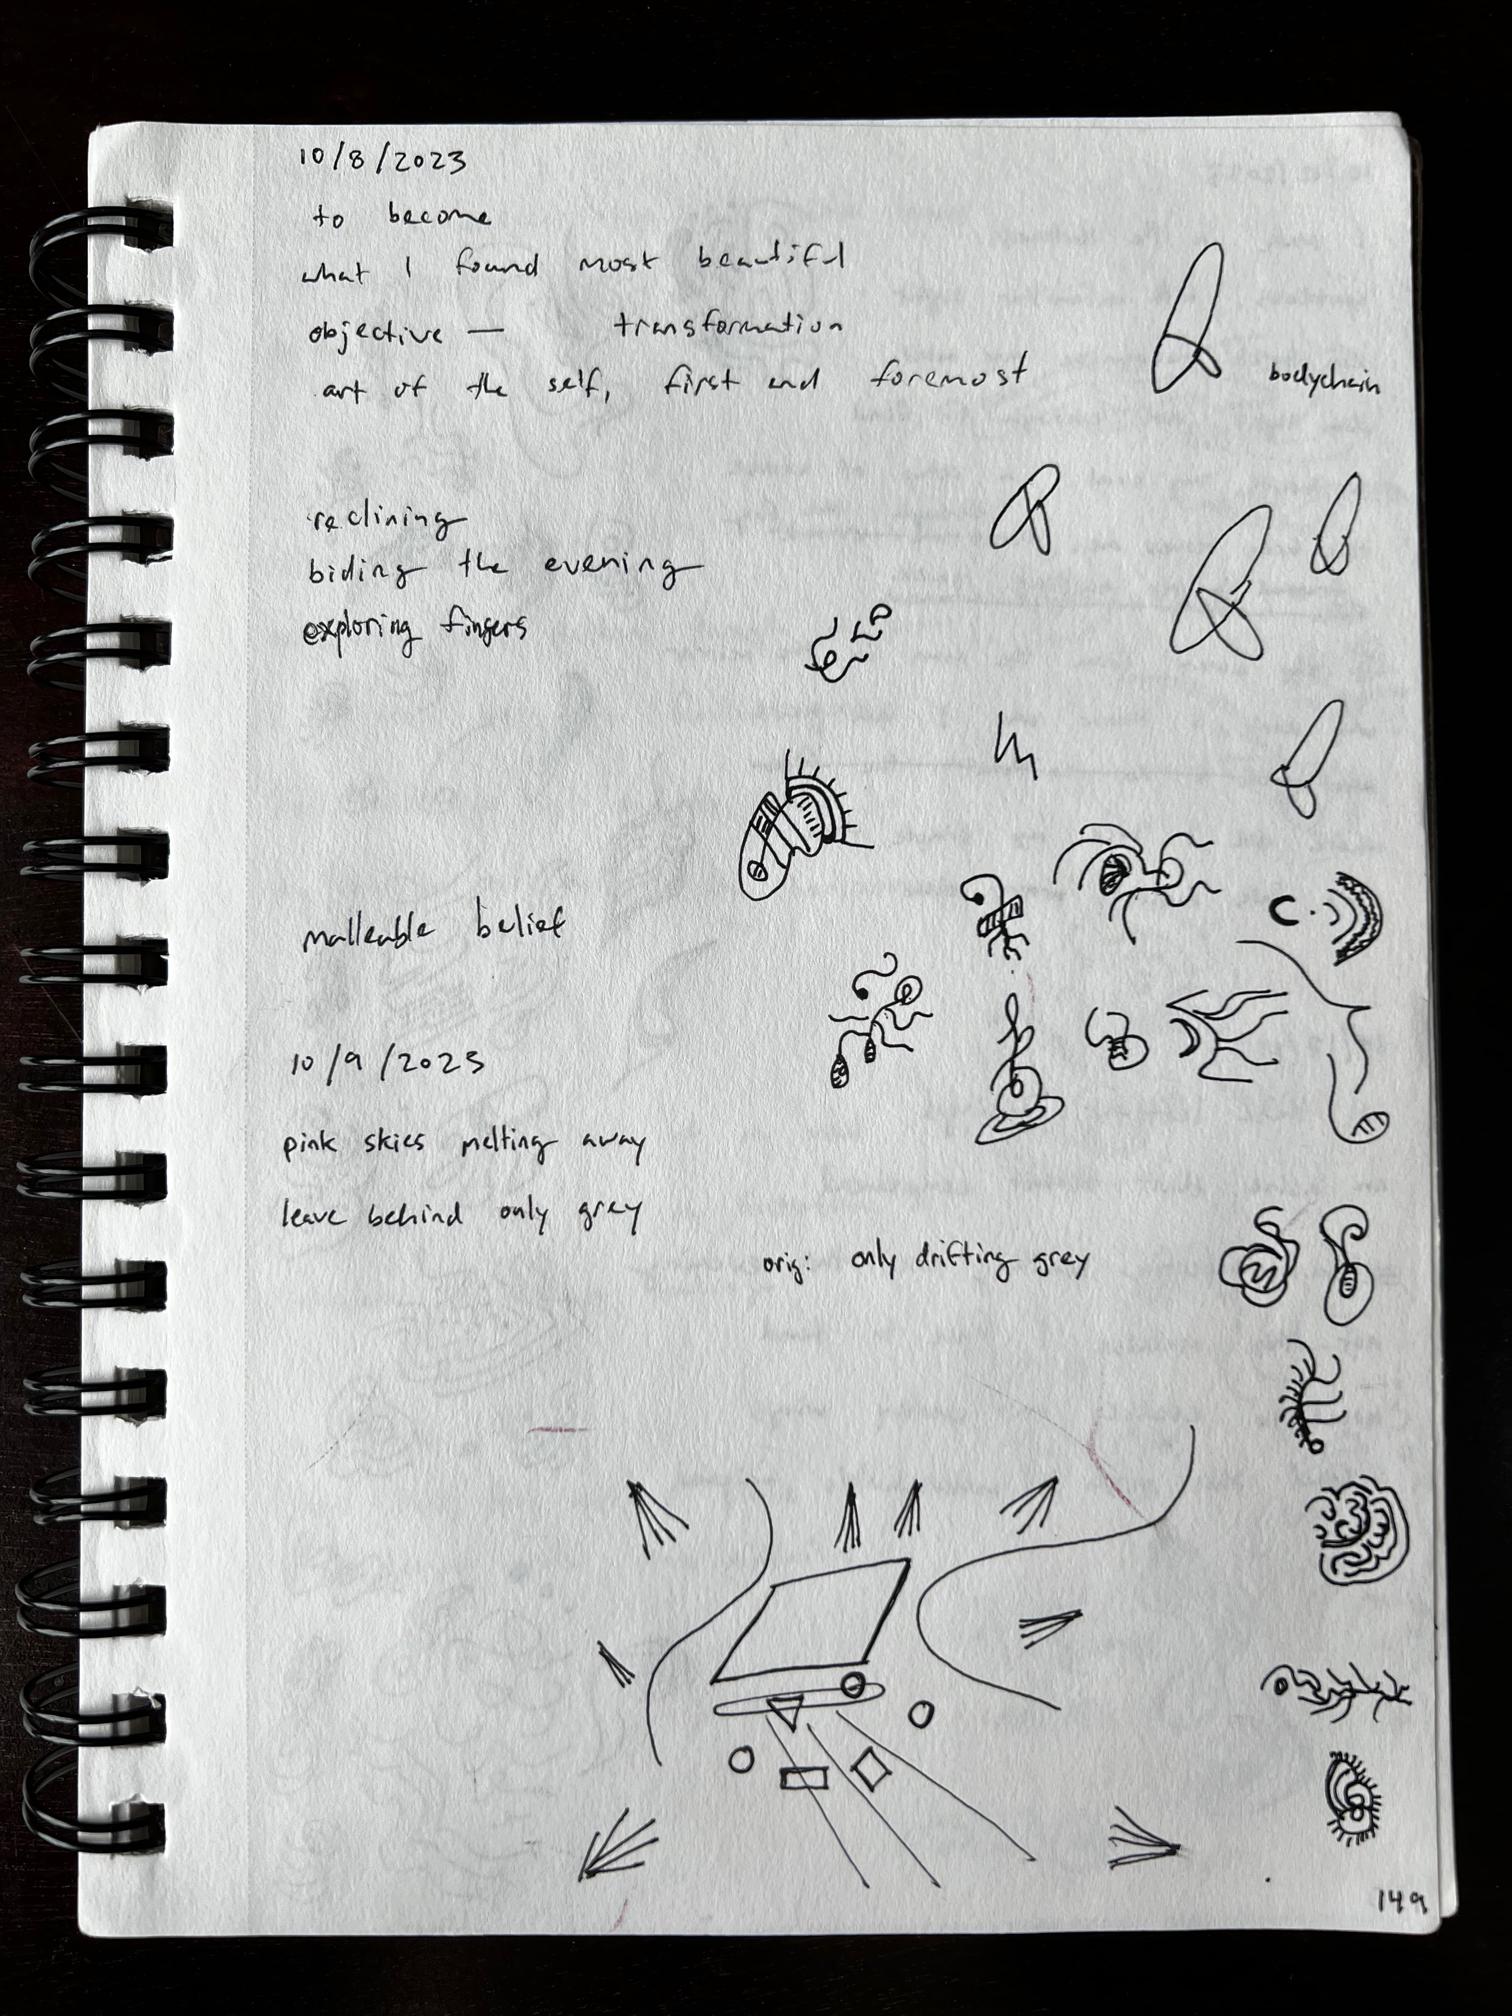 10/8/2023
to become
what I found most beautiful
objective — transformation
art of the self, first and foremost
bodychain
reclining
biding the evening
exploring fingers
malleable belief
10/9/2023
pink skies melting away
leave behind only grey
orig: only drifting grey
149